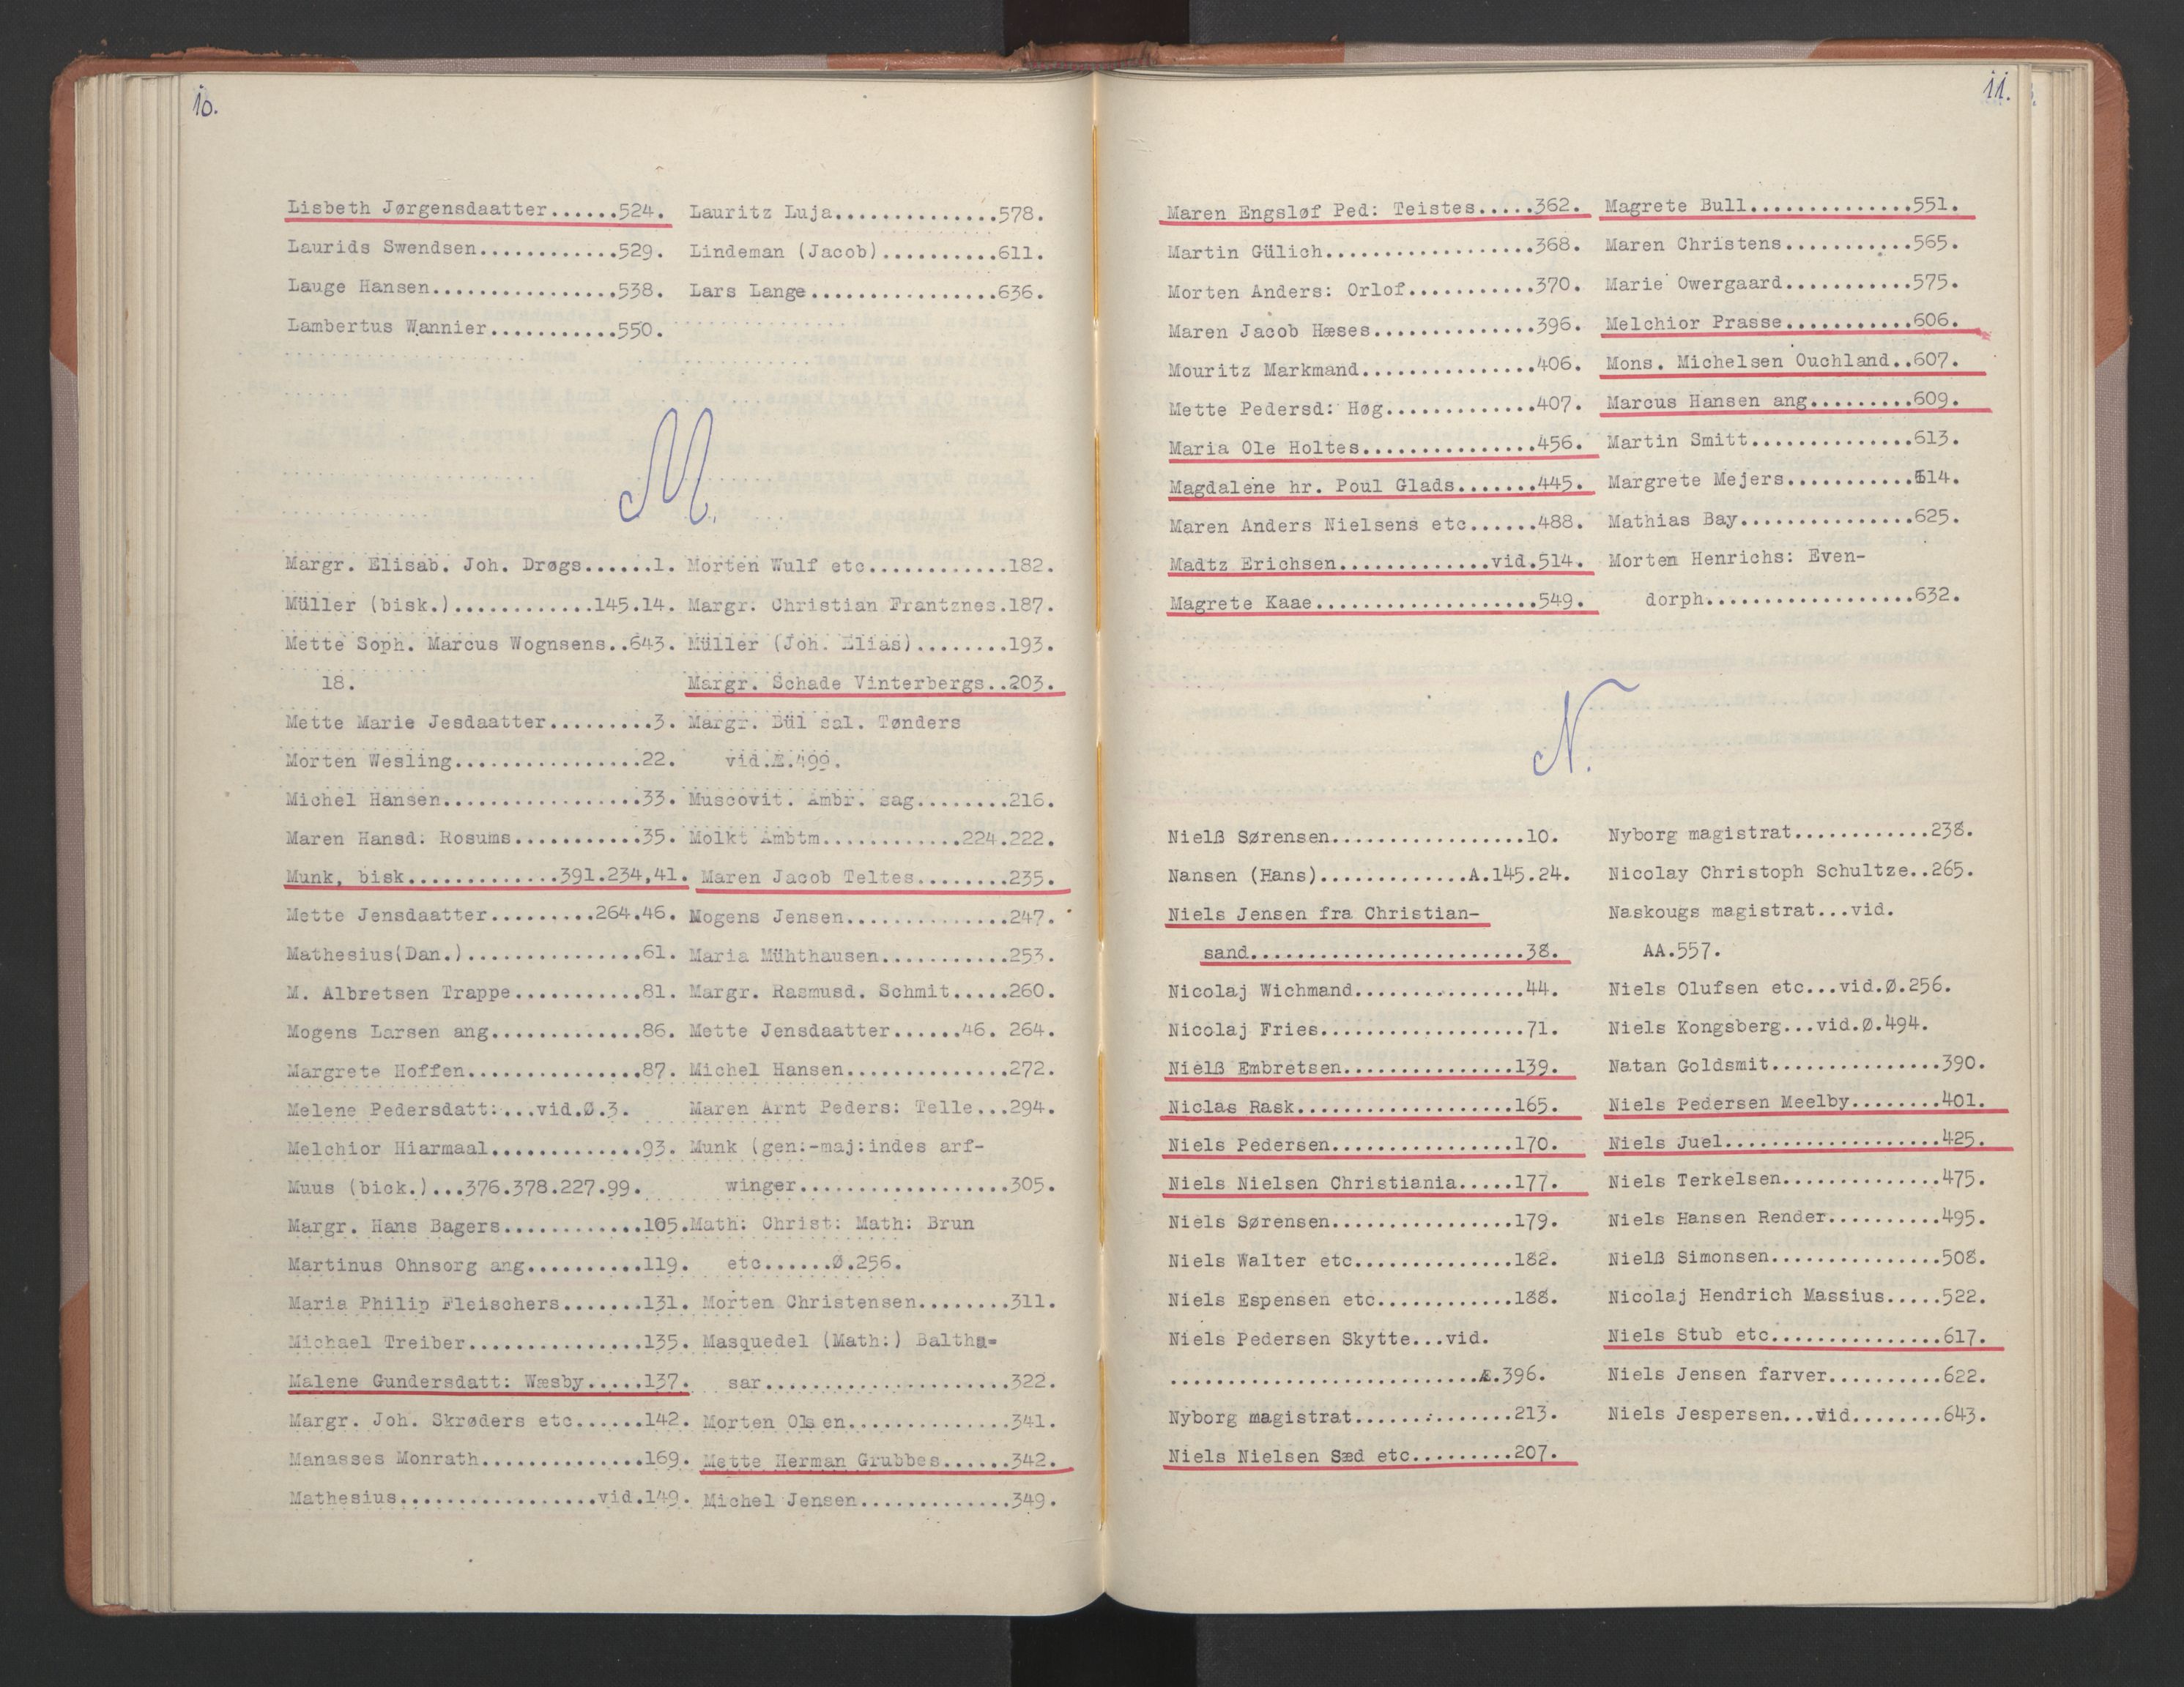 10.
Lisbeth Jørgensdaatter......524.
Laurids Swendsen............529.
Lauge Hansen................538.
Lambertus Wannier...........550.
Lauritz Luja..............578.
Lindeman (Jacob)..........611.
Lars Lange................636.
M.
Margr. Elisab. Joh. Drøgs......1.
Müller (bisk.)............145.14.
Mette Soph. Marcus Wognsens..643.
18.
Mette Marie Jesdaatter.........3.
Morten Wesling................22.
Michel Hansen.................33.
Maren Hansd: Rosums...........35.
Munk, bisk.............391.234,41.
Mette Jensdaatter.........264.46.
Mathesius(Dan.)...............61.
M. Albretsen Trappe...........81.
Mogens Larsen ang.............86.
Margrete Hoffen...............87.
Melene Pedersdatt:...vid.Ø.3.
Melchior Hiarmaal.............93.
Muus (bick.)...376.378.227.99.
Margr. Hans Bagers............105.
Martinus Ohnsorg ang..........119.
Maria Philip Fleischers.......131.
Michael Treiber...............135.
Malene Gundersdatt: Wæsby.....137.
Margr. Joh. Skrøders etc......142.
Manasses Monrath..............169.
Mathesius.................vid.149.
Morten Wulf etc............182.
Margr. Christian Frantznes.187.
Müller (Joh. Elias)........193.
Margr. Schade Vinterbergs..203.
Margr. Bül sal. Tønders
vid.Æ.499.
Muscovit. Ambr. sag........216.
Molkt Ambtm............224.222.
Maren Jacob Teltes........235.
Mogens Jensen..............247.
Maria Mühthausen...........253.
Margr. Rasmusd. Schmit.....260.
Mette Jensdaatter......46. 264.
Michel Hansen..............272.
Maren Arnt Peders: Telle...294.
Munk (gen:-maj:indes arf-
winger..................305.
Math: Christ: Math: Brun
etc......Ø.256.
Morten Christensen........311.
Masquedel (Math:) Baltha-
sar.....................322.
Morten Olsen..............341.
Mette Herman Grubbes......342.
Michel Jensen.............349.
11.
Maren Engsløf Ped: Teistes.....362.
Martin Gülich..................368.
Morten Anders: Orlof...........370.
Maren Jacob Hæses..............396.
Mouritz Markmand...............406.
Mette Pedersd: Høg.............407.
Maria Ole Holtes...............456.
Magdalene hr. Poul Glads.......445.
Maren Anders Nielsens etc......488.
Madtz Erichsen.............vid.514.
Magrete Kaae...................549.
Magrete Bull..............551.
Maren Christens...........565.
Marie Owergaard...........575.
Melchior Prasse...........606.
Mons. Michelsen Ouchland..607.
Marcus Hansen ang.........609.
Martin Smitt..............613.
Margrete Mejers...........614.
Mathias Bay...............625.
Morten Henrichs: Even-
dorph..................632.
N.
Nielß Sørensen.................10.
Nansen (Hans).............A.145.24.
Niels Jensen fra Christian-
sand........................38.
Nicolaj Wichmand...............44.
Nicolaj Fries..................71.
Nielß Embretsen...............139.
Niclas Rask...................165.
Niels Pedersen................170.
Niels Nielsen Christiania.....177.
Niels Sørensen................179.
Niels Walter etc..............182.
Niels Espensen etc............188.
Niels Pedersen Skytte...vid.
...........................Æ.396.
Nyborg magistrat..............213.
Niels Nielsen Sæd etc.........207.
Nyborg magistrat............238.
Nicolay Christoph Schultze..265.
Naskougs magistrat...vid.
AA.557.
Niels Olufsen etc...vid.Ø.256.
Niels Kongsberg...vid.Ø.494.
Natan Goldsmit...............390.
Niels Pedersen Meelby........401.
Niels Juel...................425.
Niels Terkelsen..............475.
Niels Hansen Render..........495.
Nielß Simonsen...............508.
Nicolaj Hendrich Massius.....522.
Niels Stub etc...............617.
Niels Jensen farver..........622.
Niels Jespersen...vid........643.